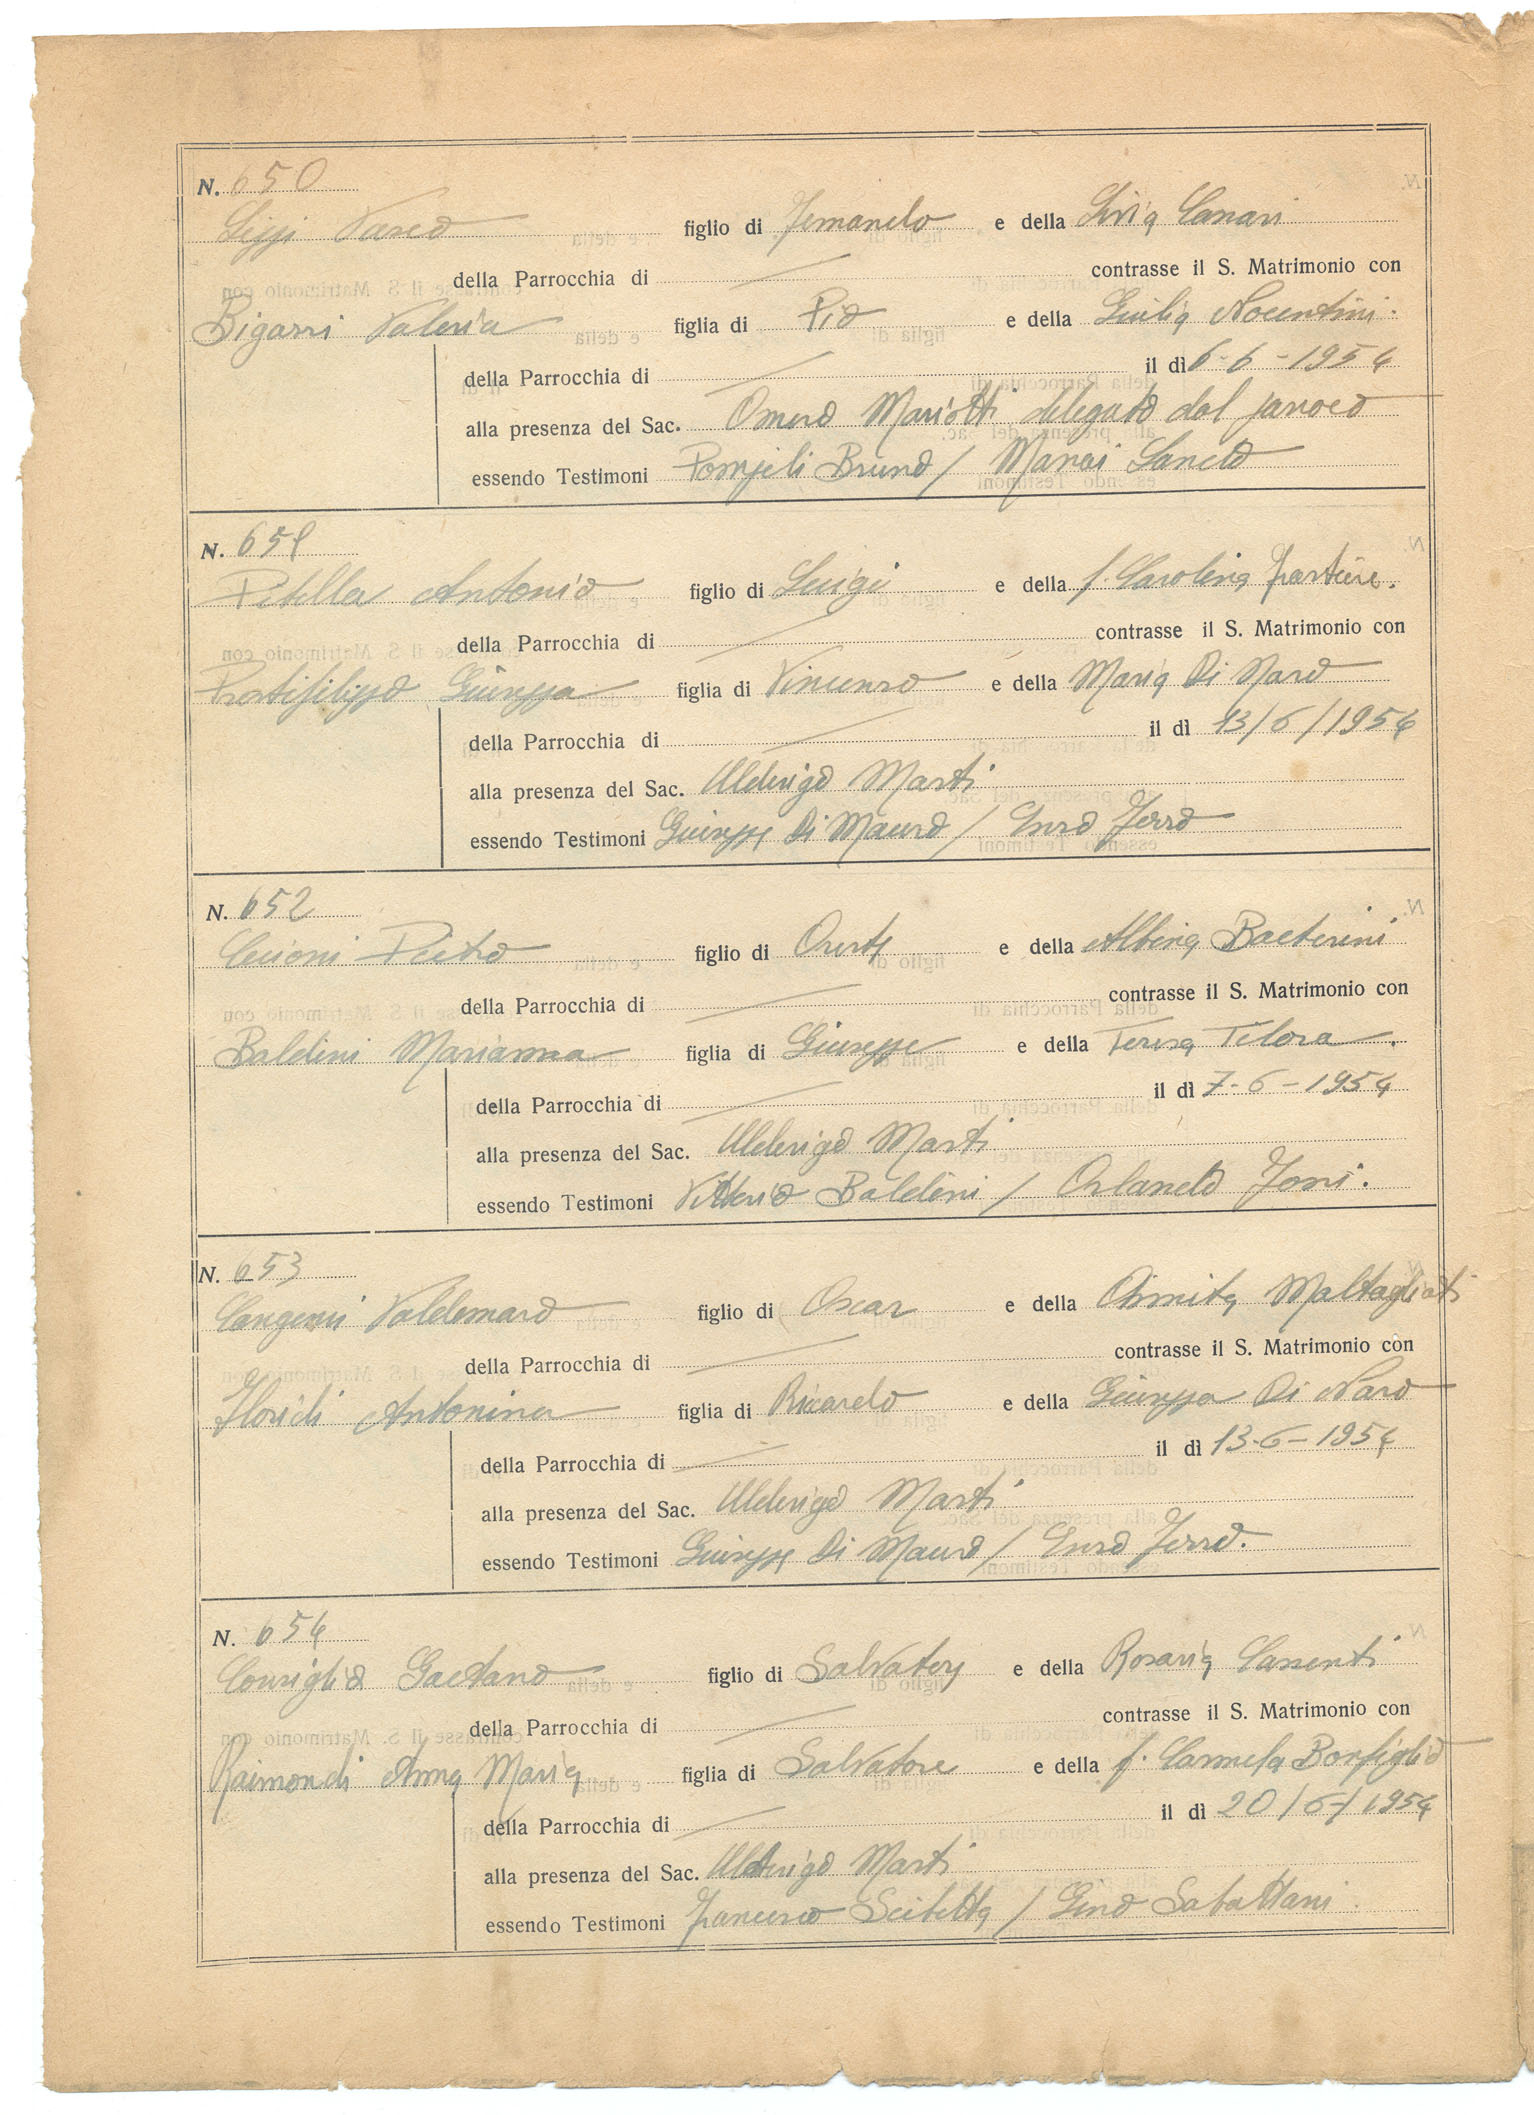 N. 650
Lippi Vasco figlio di Fernando e della Livia Canari
della Parrocchia di contrasse il S. Matrimonio con
Bigarri Valeria figlia di Pio e della Giulia Nocentini.
della Parrocchia di il dì 6-6-1954
alla presenza del Sac. Omero Mariotti delegato dal parroco
essendo Testimoni Pompili Bruno / Manai Sancto
N. 651
Pitella Antonio figlio di Luigi e della f. Carolina
della Parrocchia di contrasse il S. Matrimonio con
Prestifilippo Giuseppa figlia di Vincenzo e della Maria Di Naro
della Parrocchia di il dì 13/6/1954
alla presenza del Sac. Alderigo Marti
essendo Testimoni Giuseppe Di Mauro / Enzo Ferro
N. 652
Cecioni Pietro figlio di Oreste e della Albina
della Parrocchia di contrasse il S. Matrimonio con
Baldini Marianna figlia di Giuseppe e della Teresa Telora.
della Parrocchia di il dì 7-6-1954
alla presenza del Sac. Alderigo Marti
essendo Testimoni Vittorio Baldini / Orlando
N. 653
Cangemi Valdemaro figlio di Oscar e della Maltagliati
della Parrocchia di contrasse il S. Matrimonio con
Floridi Antonina figlia di Riccardo e della Giuseppa Di Naro
della Parrocchia di il dì 13-6-1954
alla presenza del Sac. Alderigo Marti
essendo Testimoni Giuseppe Di Mauro / Enzo Ferro.
N. 654
Consiglio Gaetano figlio di Salvatore e della Rosaria
della Parrocchia di contrasse il S. Matrimonio con
Raimondi Anna Maria figlia di Salvatore e della f. Carmela Bonfiglio
della Parrocchia di il dì 20/6/1954
alla presenza del Sac. Alderigo Marti
essendo Testimoni Francesco Scibetta / Gino Sabattani